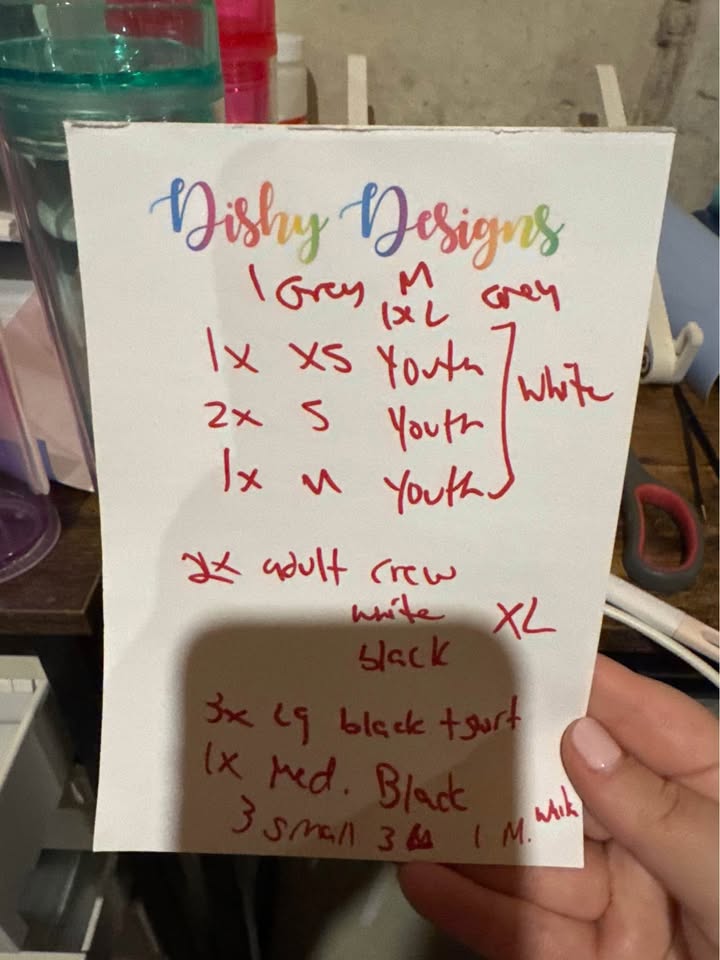 Dishy Designs
1 Grey M Grey
1x L
1x XS Youth
2x S Youth White
1x M Youth
2x adult crew
white XL
black
3x Lg black tshirt
1x Med. Black
3 small 3 1 M. white